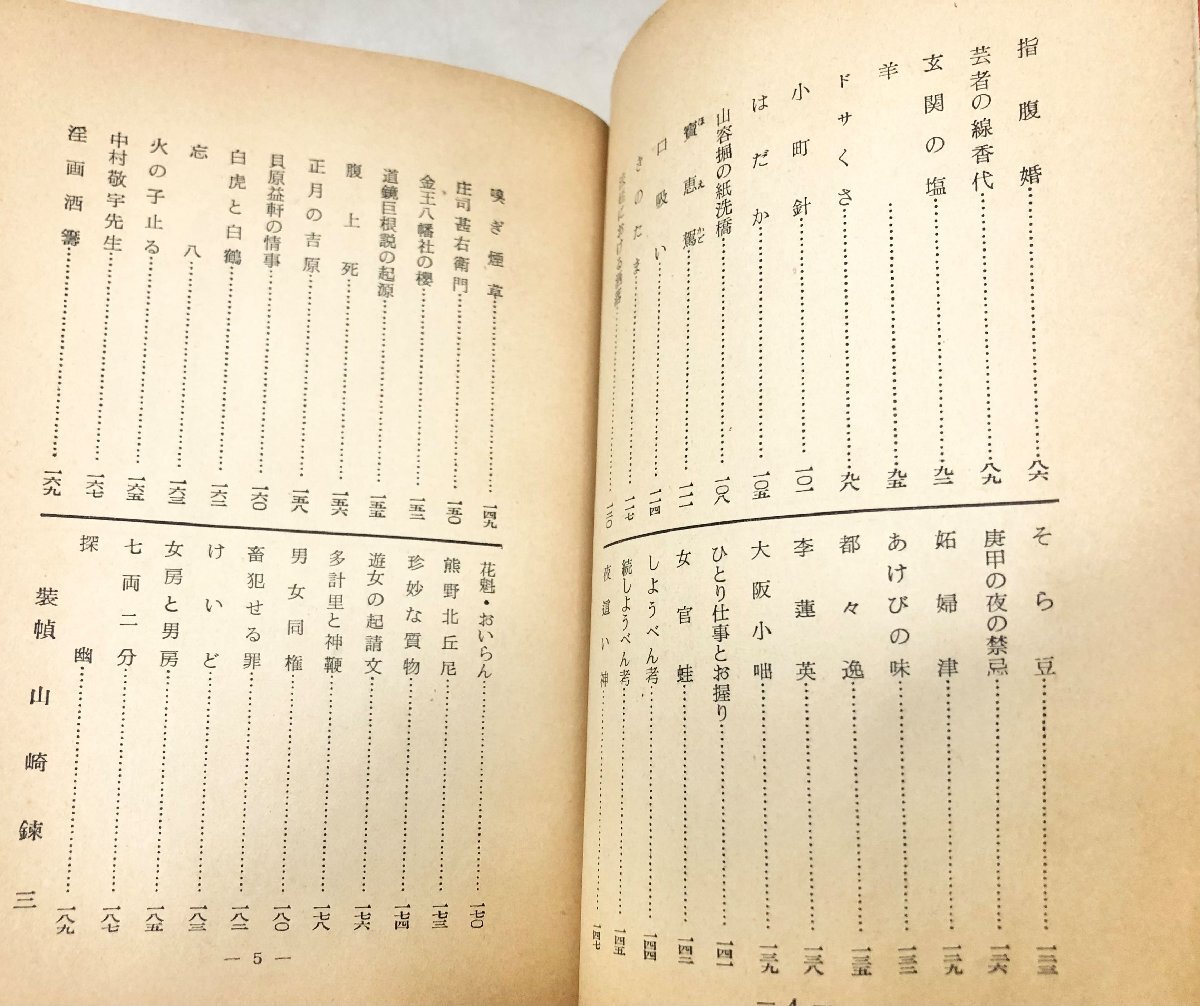 指腹婚……八六
芸者の線香代……八九
玄関の塩……九二
羊……九五
ドサくさ……九八
小町針……一〇一
はだか……一〇五
山容掘の紙洗橋……一〇八
寳恵駕……一一一
口吸い……一一四
きのたま……一一七
一二〇
そら豆……一二三
庚甲の夜の禁忌……一二六
妬婦津……一二九
あけびの味……一三二
都々逸……一三五
李蓮英……一三八
大阪小咄……一三九
ひとり仕事とお握り……一四一
女官蛙……一四二
しようべん考……一四四
続しようべん考……一四五
夜道い神……一四七
— 4 —
嗅ぎ煙草……一四九
庄司甚右衛門……一五〇
金王八幡社の櫻……一五二
道鏡巨根説の起源……一五五
腹上死……一五六
正月の吉原……一五八
貝原益軒の情事……一六〇
白虎と白鶴……一六二
忘八……一六三
火の子止る……一六五
中村敬宇先生……一六七
淫画洒籌……一六九
花魁・おいらん……一七〇
熊野北丘尼……一七三
珍妙な質物……一七四
遊女の起請文……一七六
多計里と神鞭……一七八
男女同権……一八〇
畜犯せる罪……一八二
けいど……一八三
女房と男房……一八五
七両二分……一八七
探幽……一八九
裝幀 山崎錬三
— 5 —